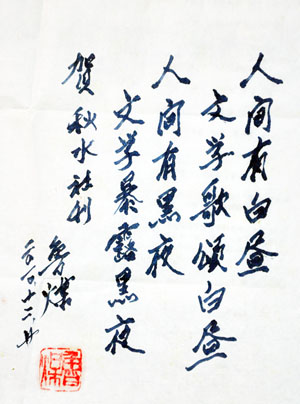 人间有白昼
文学歌颂白昼
人间有黑夜
文学暴露黑夜
贺秋水社刊
鲁煤
二〇〇六·十二·廿